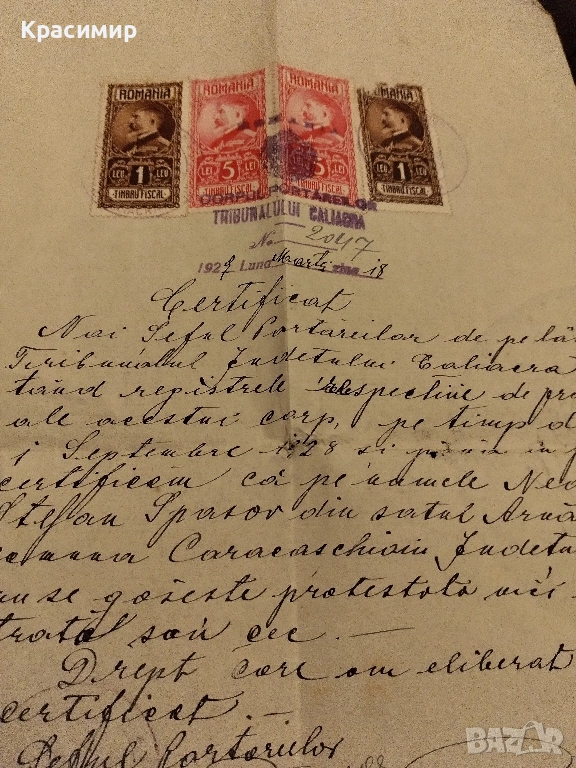 Красимир
ROMANIA ROMANIA ROMANIA ROMANIA
LEU 1 LEU LEI 5 LEI 5 LEI LEU 1 LEU
TIMBRU FISCAL TIMBRU FISCAL TIMBRU FISCAL TIMBRU FISCAL
CORPUL PORTAREILOR
TRIBUNALULUI CALIACRA
No 2047
1929 Luna Martie ziua 18
Certificat
Noi Șeful Portăreilor de pe lân
Tribunalul Județului Caliacra
tând registrele respective de pro
ale acestui corp, pe timp d
1 Septembre 1928 și până în p
certificăm că pe numele Ned
Ștefan Spasov din satul Arnă
comuna Caracaschioiu Județu
nu se găsește protestată nici
trată sau cec. —
Drept care am eliberat
certificat. —
Șeful Portăreilor
BAZAR